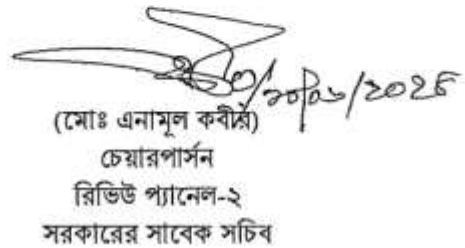 (মোঃ এনামূল কবীর)
চেয়ারপার্সন
রিভিউ প্যানেল-২
সরকারের সাবেক সচিব